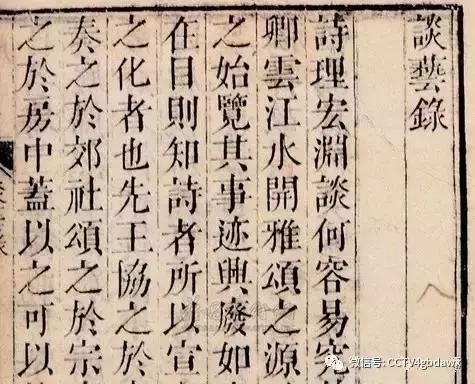 談藝錄
詩理宏淵談何容易究
卿雲江水開雅頌之源
之始覽其事迹興廢如
在目則知詩者所以宣
之化者也先王協之於
奏之於郊社頌之於宗
之於房中蓋以之可以
微信号: